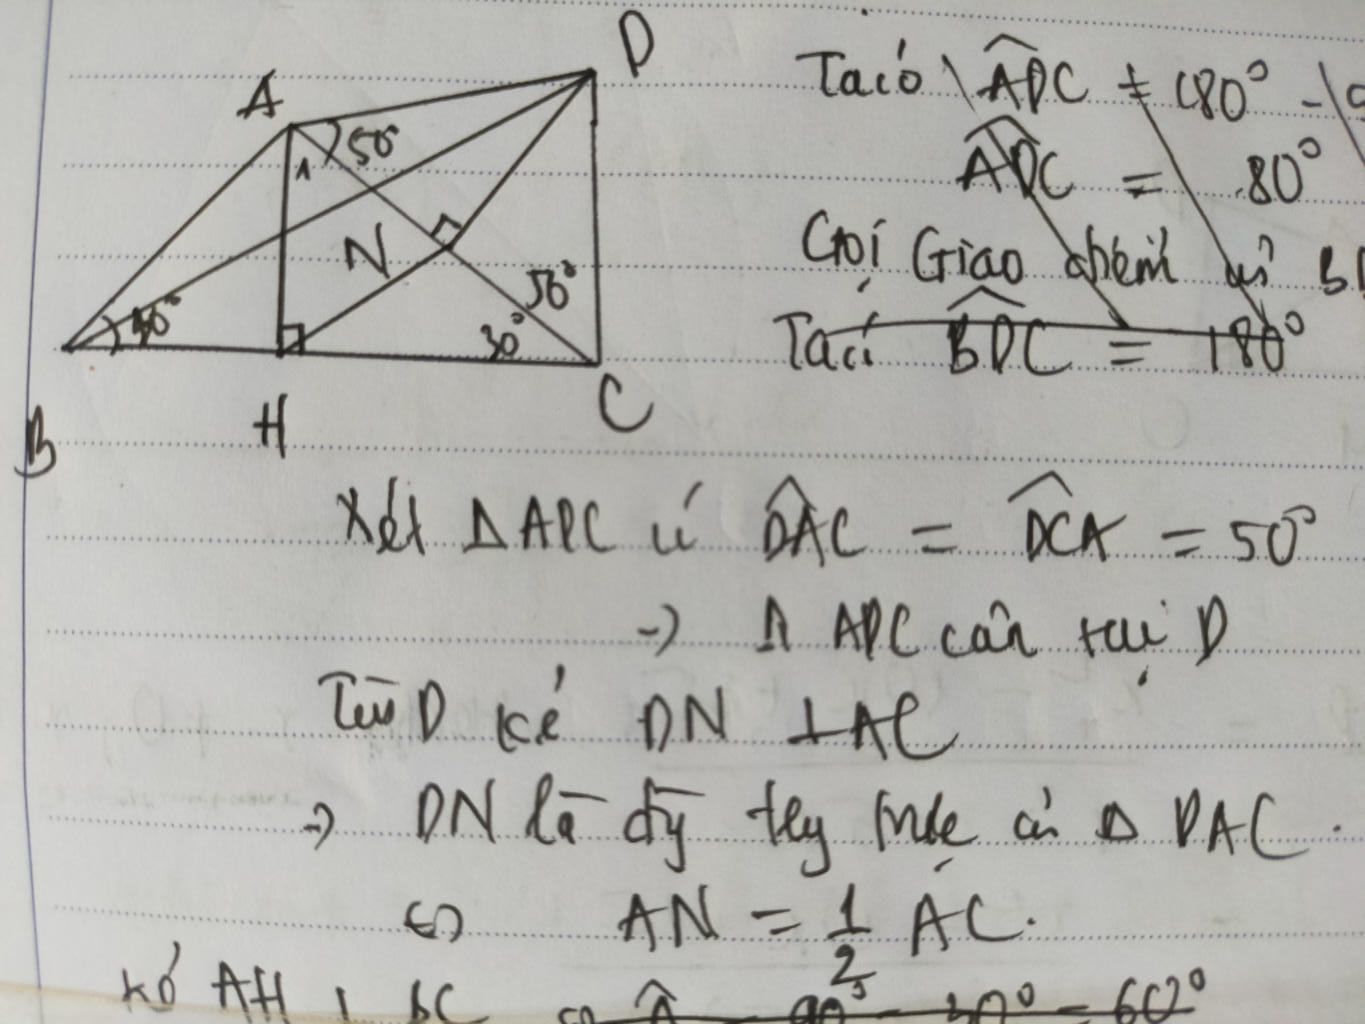 D
A
50°
1
N
50°
40°
30°
B
H
C
Ta có \ ADC = 180° -
ADC = 80°
Gọi Giao điểm
Ta có BDC = 180°
Xét Δ ADC có DAC = DCA = 50°
→ Δ ADC cân tại D
Từ D kẻ DN ⊥ AC
→ DN là đg Δ DAC.
⇔ AN = 1/2 AC.
Kẻ AH ⊥ BC A = 90° - 30° = 60°